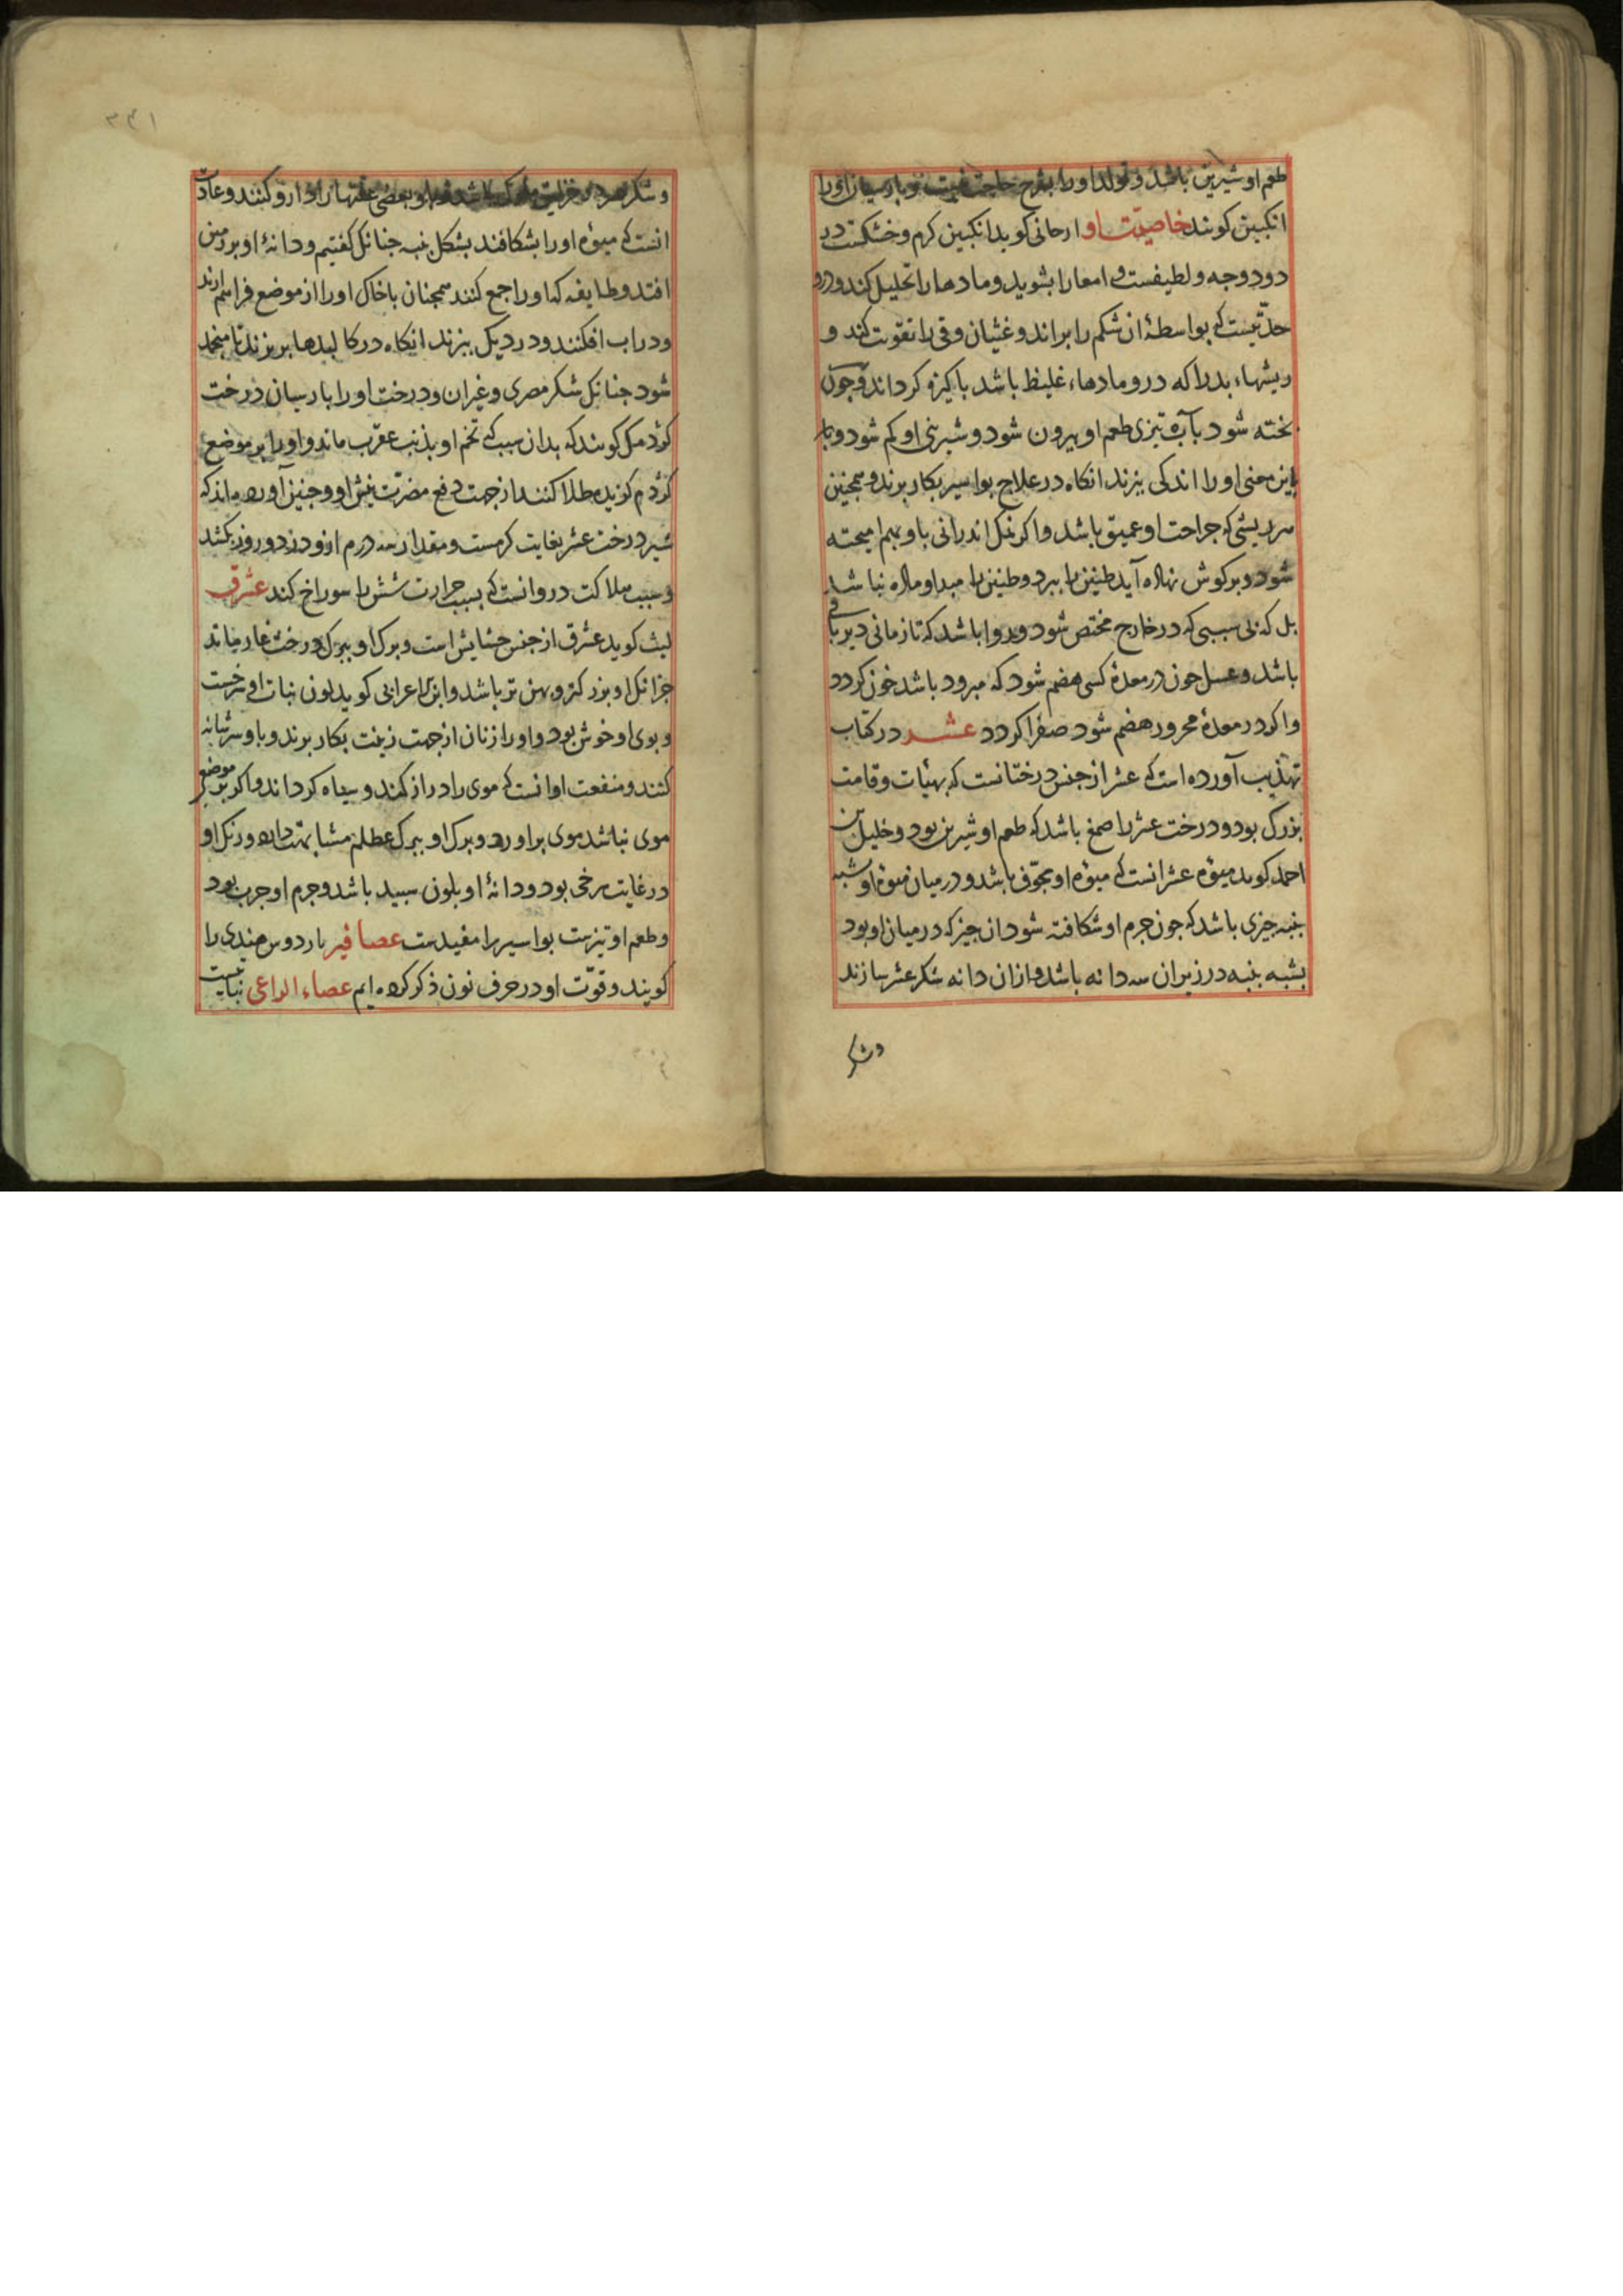 طعم او شیرین باشد و تولد او را بشرح حاجت نیست و بارسیان او را
انکبین کویند خاصیّت او ارحانی کوید انکبین کرم و خشکست در
دو درجه و لطیفست و امعا را بشوید و مادها را تحلیل کند و درو
حدّتیست که بواسطهٔ ان شکم را براند و غثیان و قی را تقویت کند و
ریشهاء بد را که درو مادهاء غلیظ باشد باکیزه کرداند و جون
بخته شود بآب تیزی طعم او بیرون شود و شیرینی او کم شود و
باین معنی او را اندکی بزند انکاه در علاج بواسیر بکار برند و همجنین
هر ریشی که جراحت او عمیق باشد و اکر نمک اندرانی با و بهم امیخته
شود و بر کوش نهاده آید طنین را ببرد و طنین را مبدا و ماده نباشد
بل که بی سببی که در خارج مختص شود و روا باشد که تا زمانی دیر باقی
باشد و عسل جون در معدهٔ کسی هضم شود که مبرود باشد خون کردد
و اکر در معدهٔ محرور هضم شود صفرا کردد عشر در کتاب
تهذیب آورده است که عشر از جنس درختانست که بهیٔات و قامت
بزرک بود و درخت عشر را صمغ باشد که طعم او شیرین بود و خلیل بن
احمد کوید میوهٔ عشر انست که میوهٔ او مجوّف باشد و در میان میوهٔ او شبه
بنبه جیزی باشد که جون جرم او شکافته شود ان جیز که در میان او بود
بشبه بنبه در زیر ان سه دانه باشد و ازان دانه شکر عشر سازند
وشکر
۳۴۱
و شکر و بعضی علتها را دارو کنند و عادت
انست که میوهٔ او را بشکافند بشکل بنبه جنانک کفتیم و دانهٔ او بر زمین
افتد و طایفه که او را جمع کنند همجنان با خاک او را از موضع فراهم ارند
و در اب افکنند و در دیک بزند انکاه در کالبدها بریزند تا منجمد
شود جنانک شکر مصری و غیر ان و درخت او را بارسیان درخت
کژدمک کویند که بدان سبب که تخم او بذنب عقرب ماند و او را بر موضع
کژدم کزیده طلا کنند از جهت دفع مضرّت نیش او و جنین آورده اند که
شیر درخت عشر بغایت کرمست و مقدار سه درم ازو در دو روز بکشد
و سبب هلاکت در و انست که بسبب حرارت شش را سوراخ کند عشرق
لیث کوید عشرق از جنس حشایش است و برک او ببرک درخت غار ماند
جز انک او بزرکتر و بهن تر باشد و ابن اعرابی کوید لون نبات او سرخست
و بوی او خوش بود و او را زنان از جهت زینت بکار برند و با و سر شانه
کنند و منفعت او انست که موی را دراز کند و سیاه کرداند و اکر بر موضع
موی نباشد موی براورد و برک او ببرک عظلم مشابهت دارد و رنک او
در غایت سرخی بود و دانهٔ او بلون سبید باشد و جرم او جرب بود
و طعم او تیزست بواسیر را مفیدست عصافیر ناردوس هندی را
کویند و قوّت او در حرف نون ذکر کرده ایم عصاء الراعی نباتیست